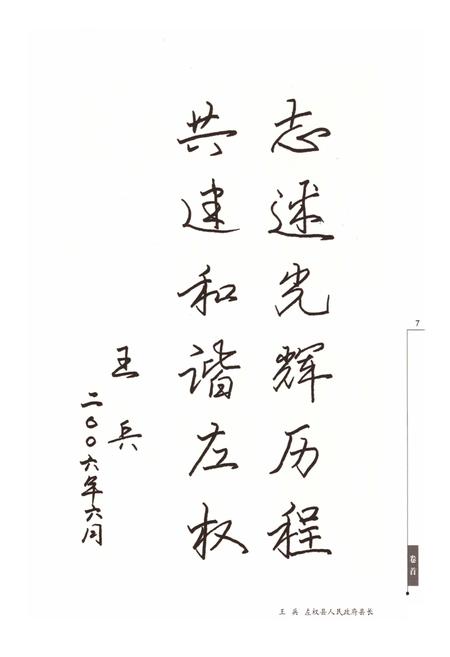 志述光辉历程
共建和谐左权
王兵
二〇〇六年六月
7
卷首
王 兵 左权县人民政府县长